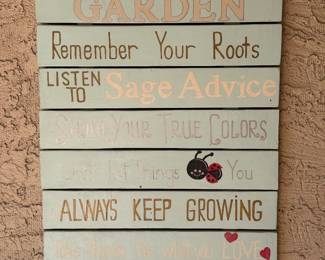 GARDEN
Remember Your Roots
LISTEN TO Sage Advice
Show Your True Colors
Things You
ALWAYS KEEP GROWING
LOVE